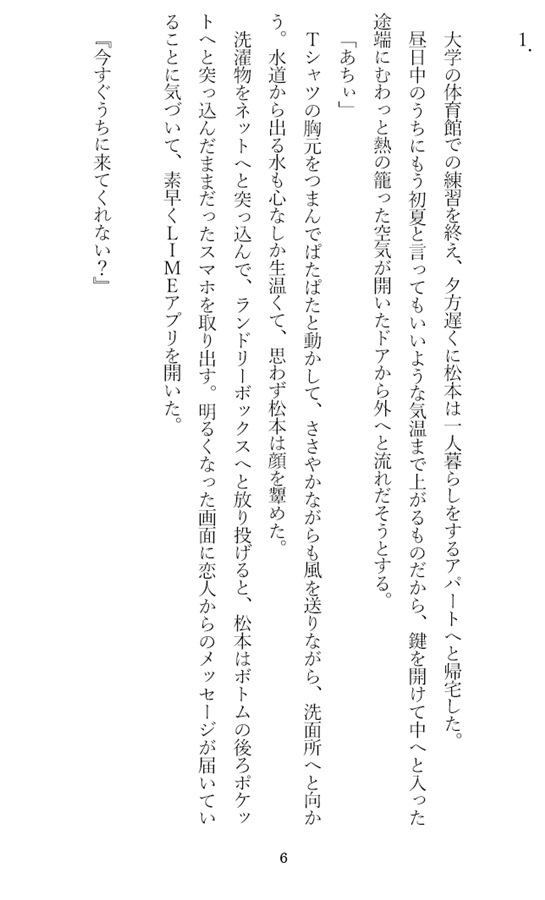 1.
大学の体育館での練習を終え、夕方遅くに松本は一人暮らしをするアパートへと帰宅した。
昼日中のうちにもう初夏と言ってもいいような気温まで上がるものだから、鍵を開けて中へと入った
途端にむわっと熱の籠った空気が開いたドアから外へと流れだそうとする。
「あちぃ」
Tシャツの胸元をつまんでぱたぱたと動かして、ささやかながらも風を送りながら、洗面所へと向か
う。水道から出る水も心なしか生温くて、思わず松本は顔を顰めた。
洗濯物をネットへと突っ込んで、ランドリーボックスへと放り投げると、松本はボトムの後ろポケッ
トへと突っ込んだままだったスマホを取り出す。明るくなった画面に恋人からのメッセージが届いてい
ることに気づいて、素早くLIMEアプリを開いた。
『今すぐうちに来てくれない？』
6